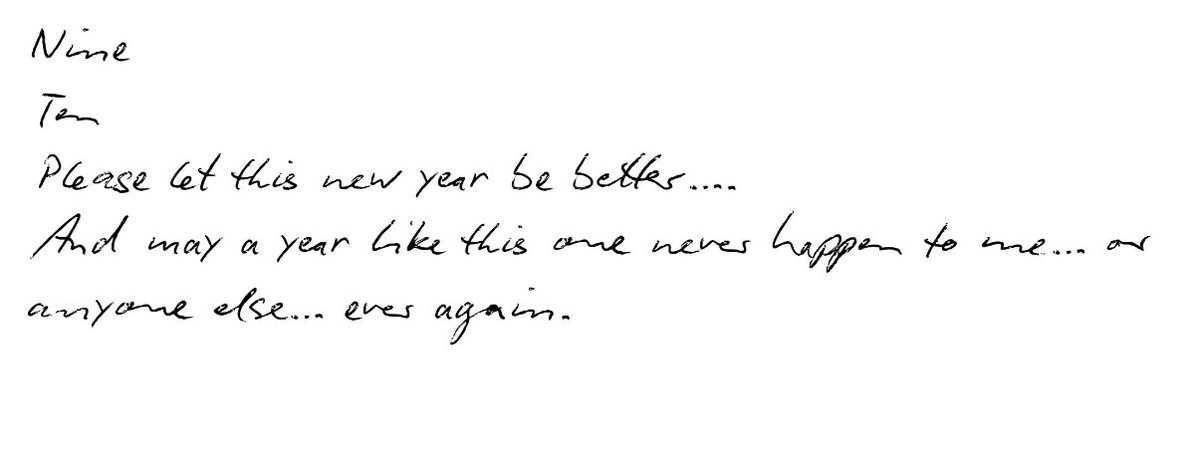 Nine
Ten
Please let this new year be better....
And may a year like this one never happen to me... or
anyone else... ever again.